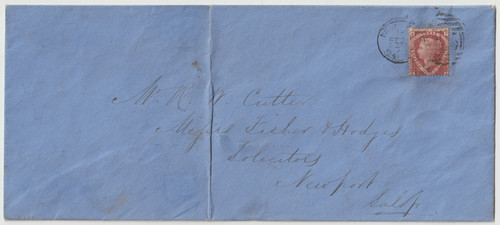 Mr. R. W. Cutter
Messrs Fisher & Hodges
Solicitors
Newport
Salop